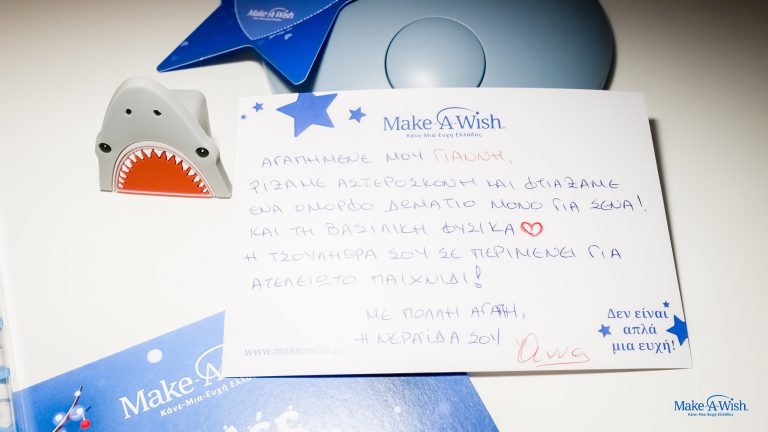 Make-A-Wish
Make-A-Wish®
Κάνε-Μια-Ευχή Ελλάδος
ΑΓΑΠΗΜΕΝΕ ΜΟΥ ΓΙΑΝΝΗ,
ΡΙΞΑΜΕ ΑΣΤΕΡΟΣΚΟΝΗ ΚΑΙ ΦΤΙΑΞΑΜΕ
ΕΝΑ ΟΜΟΡΦΟ ΔΩΜΑΤΙΟ ΜΟΝΟ ΓΙΑ ΣΕΝΑ!
ΚΑΙ ΤΗ ΒΑΣΙΛΙΚΗ ΦΥΣΙΚΑ
Η ΤΣΟΥΛΗΘΡΑ ΣΟΥ ΣΕ ΠΕΡΙΜΕΝΕΙ ΓΙΑ
ΑΤΕΛΕΙΩΤΟ ΠΑΙΧΝΙΔΙ!
ΜΕ ΠΟΛΛΗ ΑΓΑΠΗ,
Η ΝΕΡΑΪΔΑ ΣΟΥ
Άννα
www.makeawish.gr
Δεν είναι
απλά
μια ευχή!
Make-A-Wish
Κάνε-Μια-Ευχή Ελλάδος
Make-A-Wish®
Κάνε-Μια-Ευχή Ελλάδος